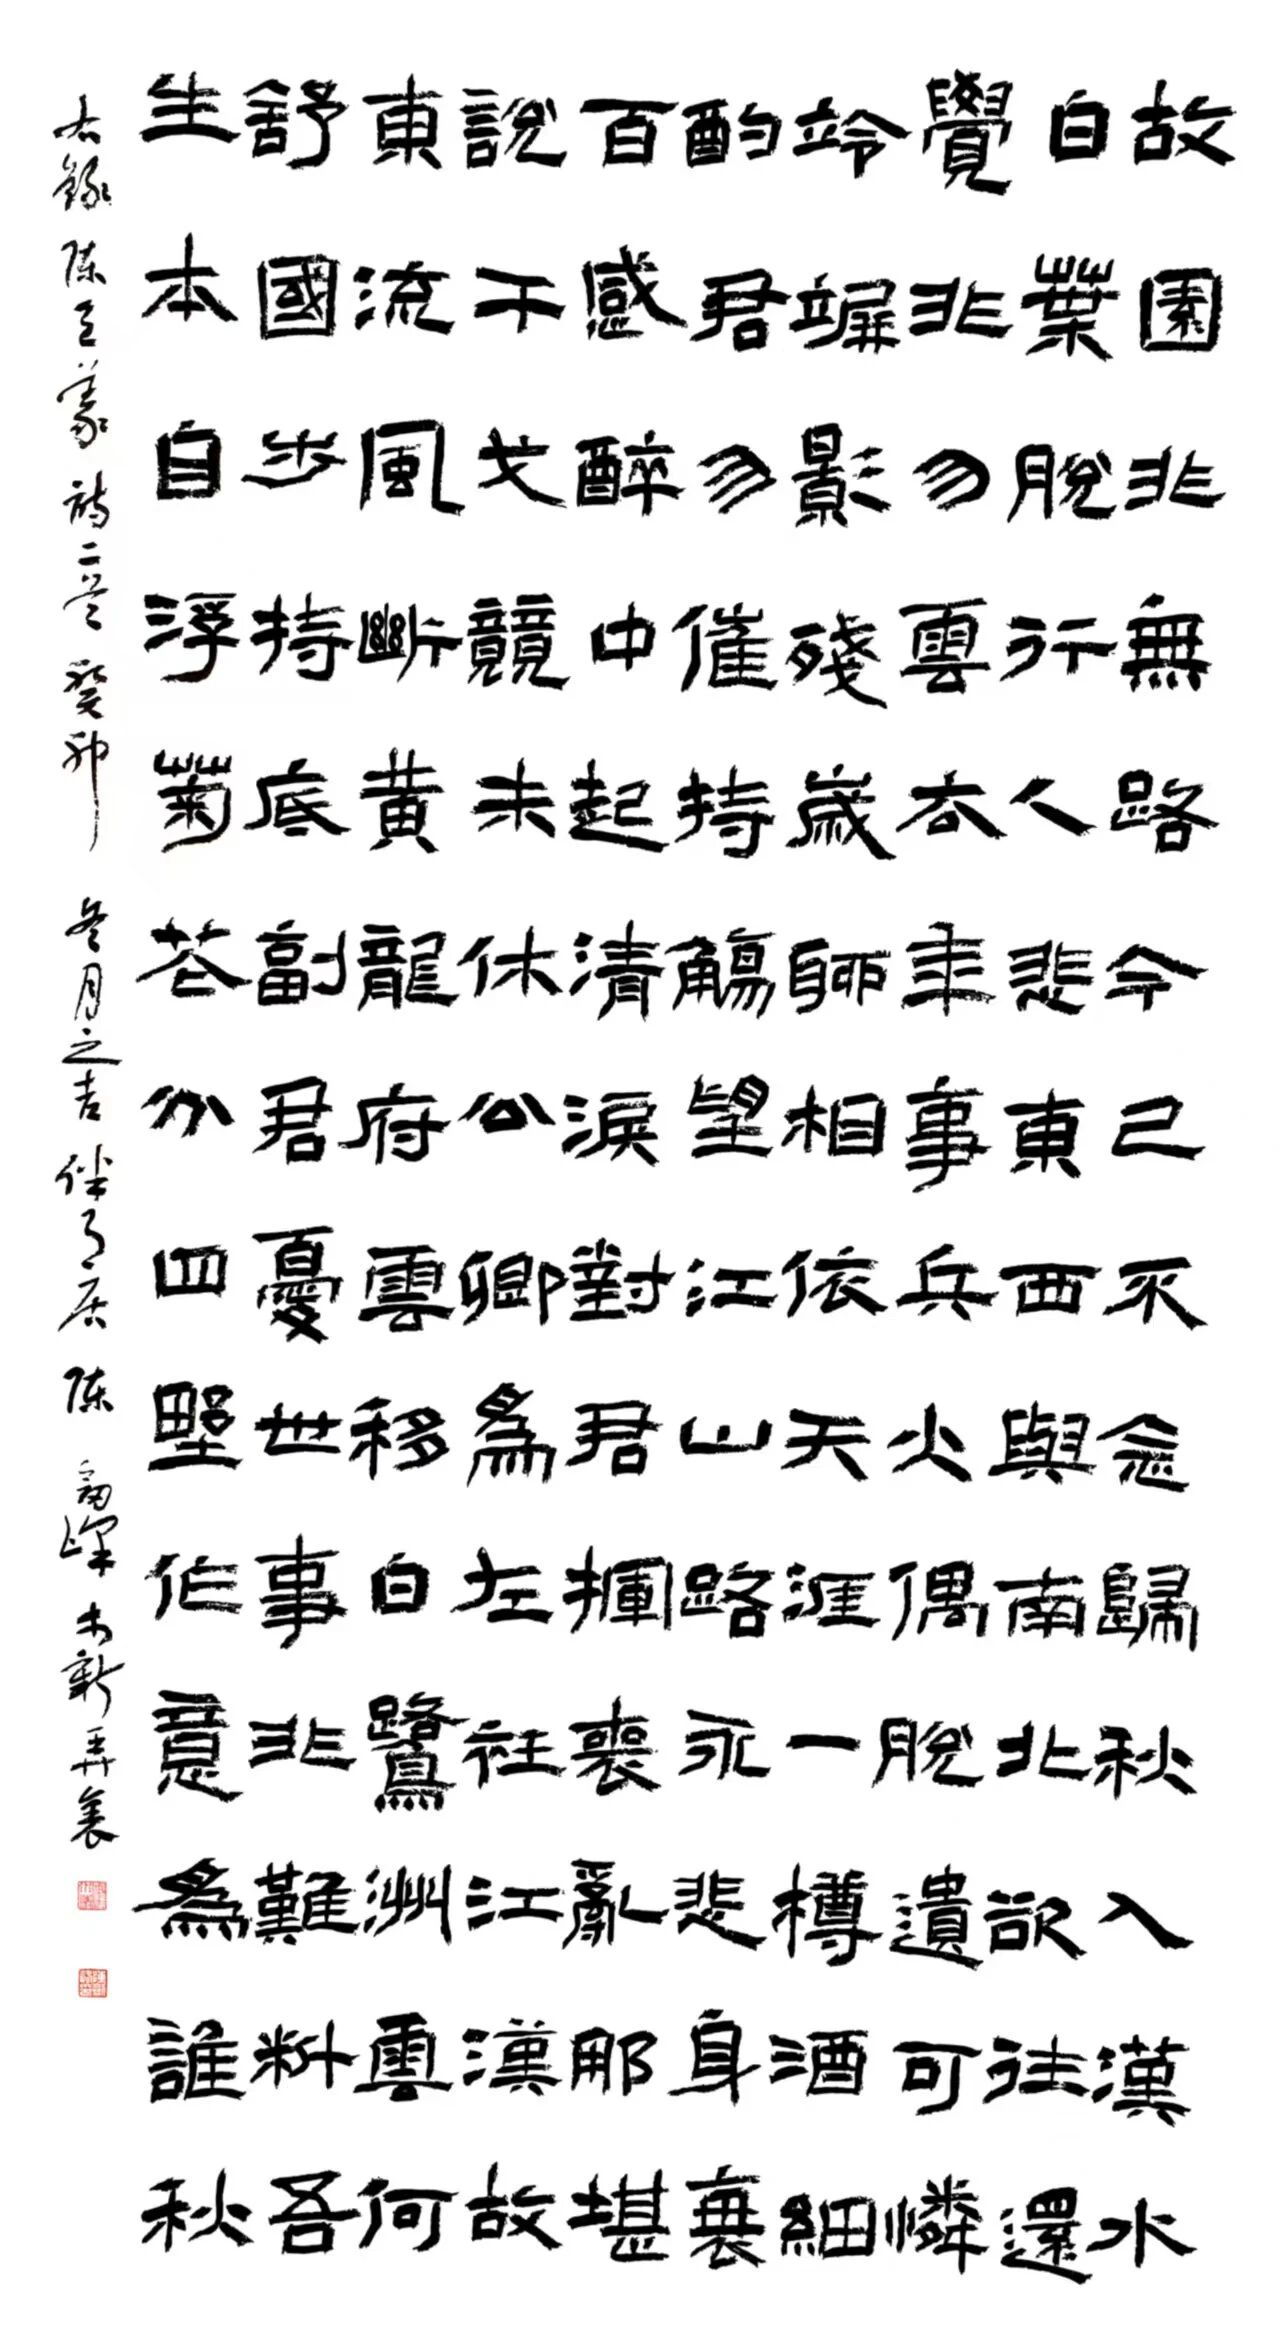 故園非無路今已不念歸秋入漢水
白葉脫行人悲東西與南北欲往還
覺非勿雲衣年事兵火偶脫遺可憐
竛竮影殘歲聊相依天涯一樽酒細
酌君勿催持觴望江山路永悲身衰
百感醉中起清淚對君揮喪亂那堪
說干戈競未休公卿為左衽江漢故
東流風斷黃龍府雲移白鷺洲雲何
舒國步持底副君憂世事非難料吾
生本自浮菊花分四野作意為誰秋
右錄陳与義詩二首癸卯冬月之吉伴月居陳